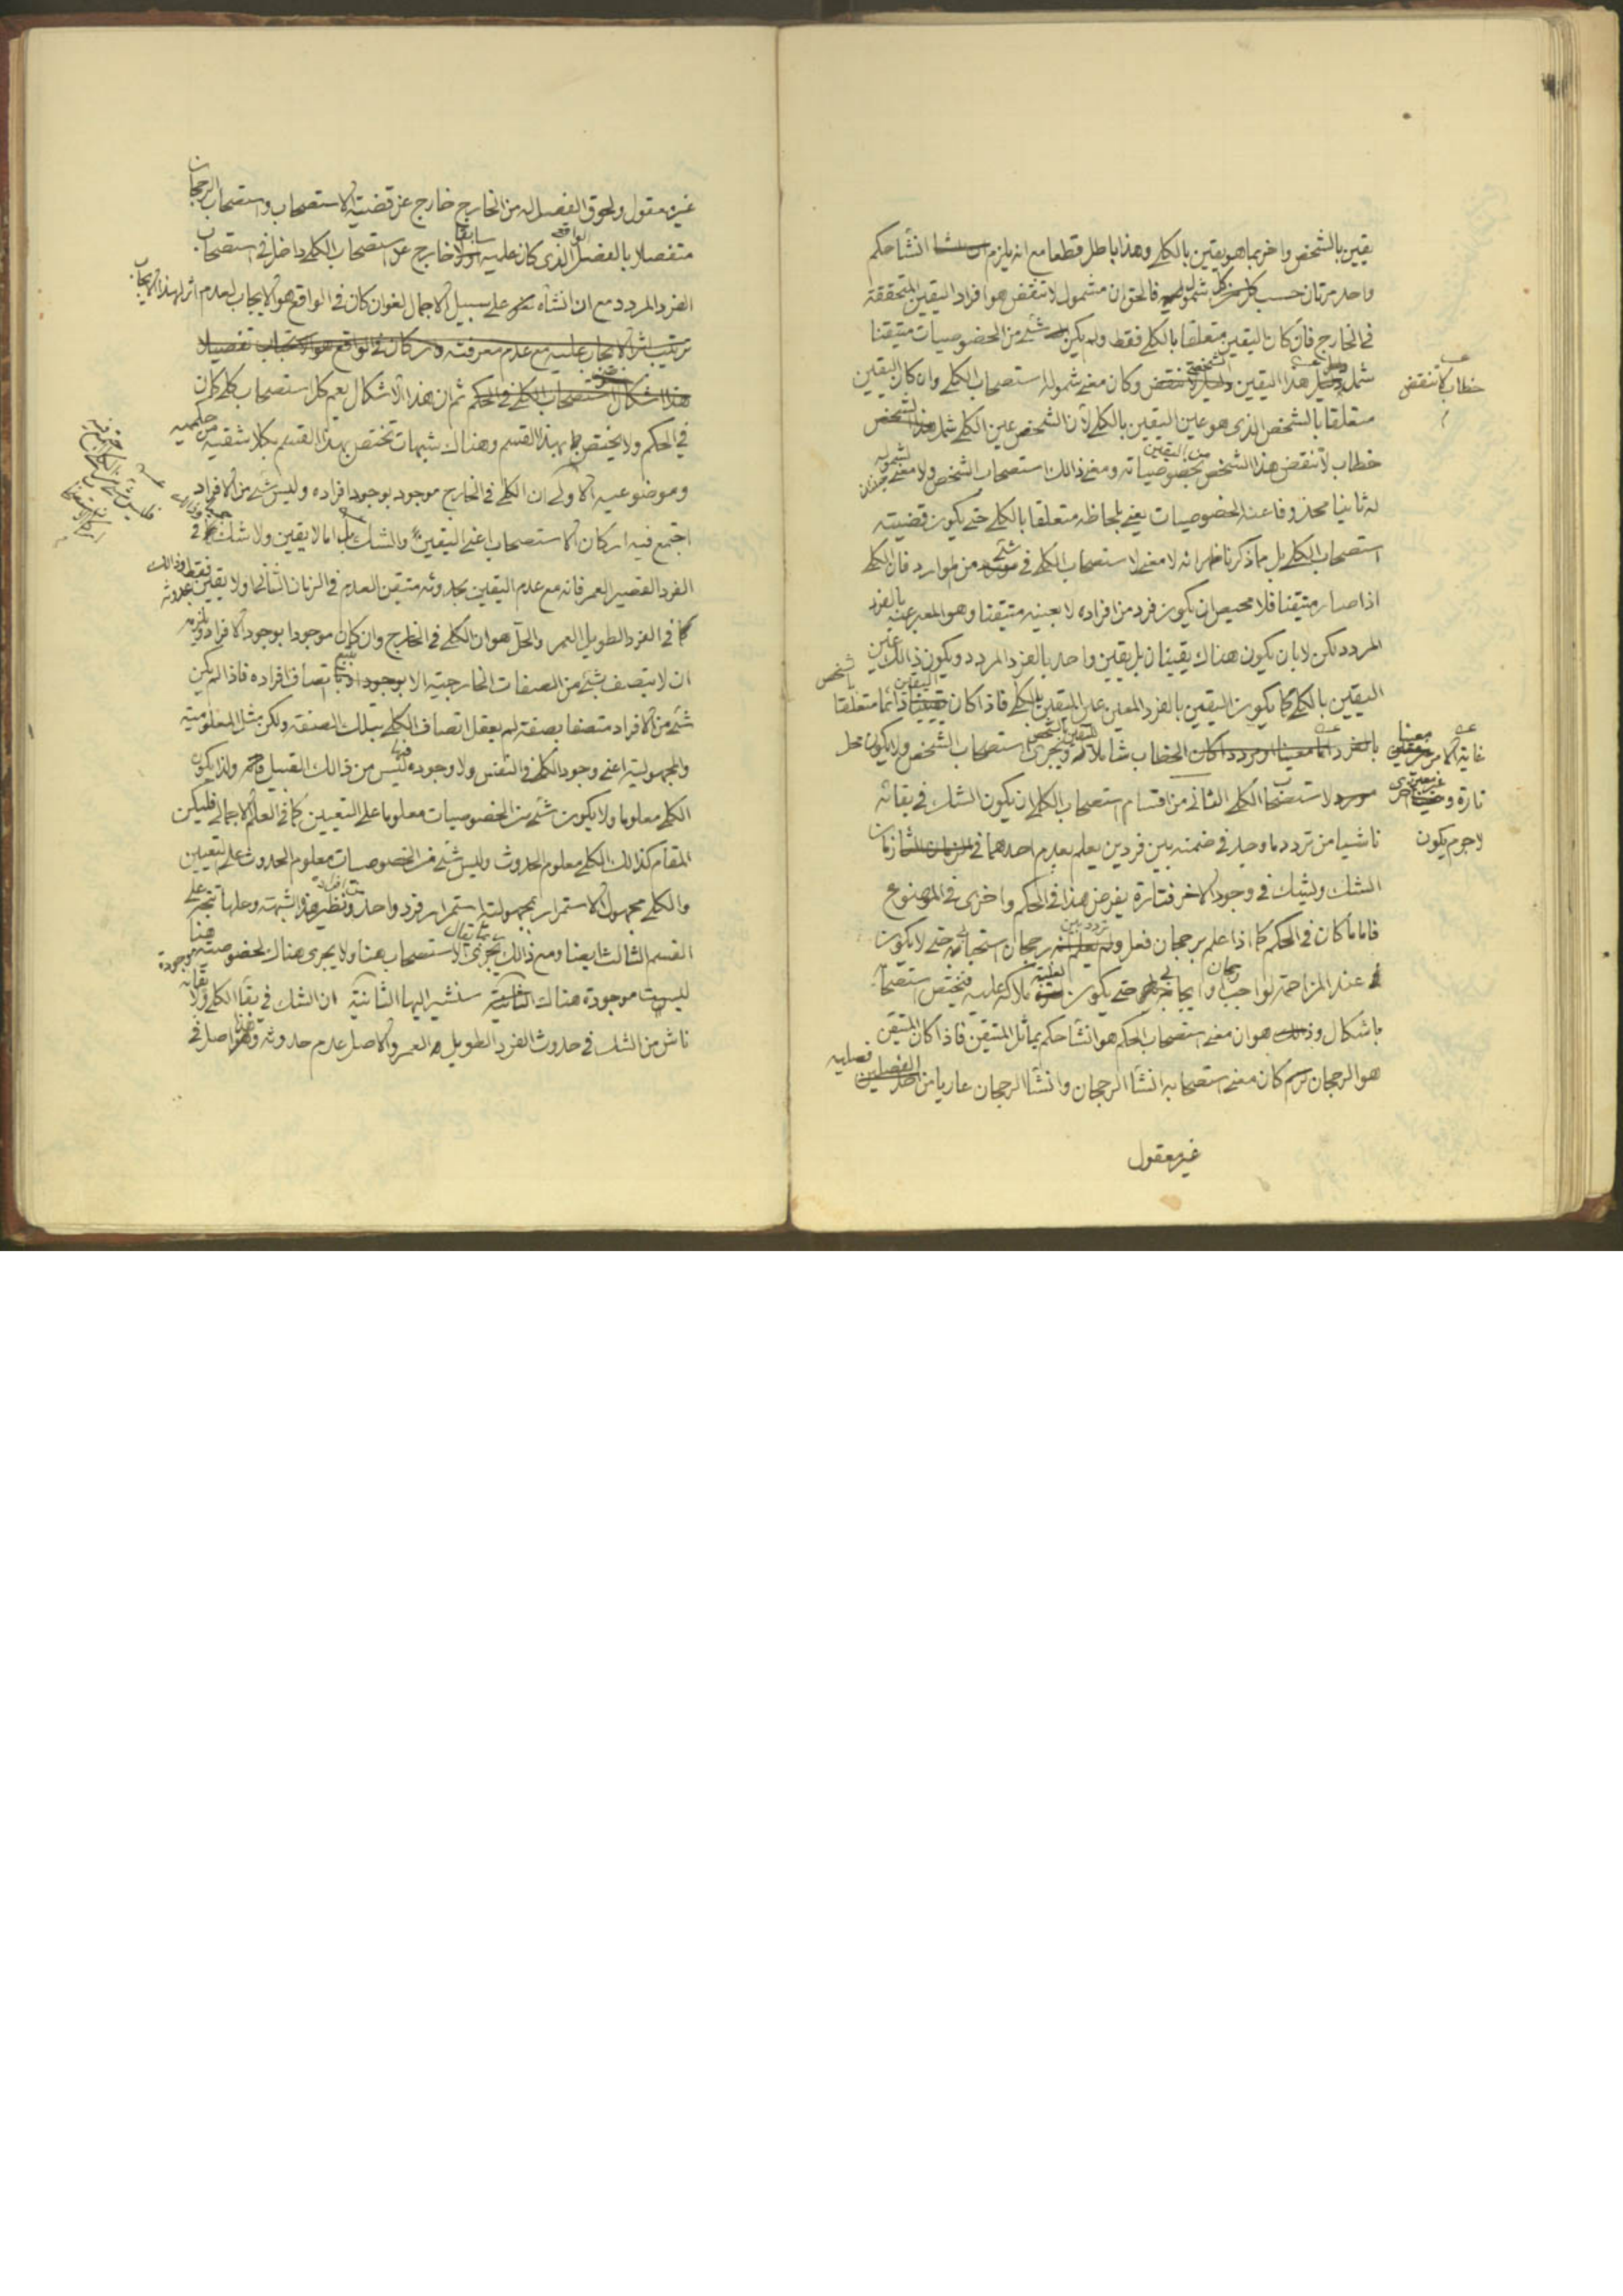 يقين بالشخص واخر بما هو يقين بالكلي وهذا باطل قطعا مع انه يلزم انشاء حكم
واحد مرتان حسب شموله فالحق ان مشمول لا تنقض هو افراد اليقين المتحققة
في الخارج فان كان اليقين متعلقا بالكلي فقط ولم يكن شئ من الخصوصيات متيقنا
شمل هذا اليقين وكان معنى شموله استصحاب الكلي وان كان اليقين
خطاب لا تنقض
متعلقا بالشخص الذي هو عين اليقين بالكلي لان الشخص عين الكلي شمل
خطاب لا تنقض هذا الشخص من اليقين بخصوصياته ومعنى ذالك استصحاب الشخص ولا معنى لشموله
له ثانيا محذوفا عنه الخصوصيات يعني بلحاظه متعلقا بالكلي حتى يكون قضيته
استصحاب الكلي بل مما ذكرنا ظهر انه لا معنى لاستصحاب الكلي في شئ من الموارد فان الكلي
اذا صار متيقنا فلا محيص ان يكون فرد من افراده لا بعينه متيقنا وهو المعبر عنه بالفرد
المردد لكن لا بان يكون هناك يقينان بل يقين واحد بالفرد المردد ويكون ذالك عين
اليقين بالكلي كما يكون اليقين بالفرد المعين عين اليقين بالكلي فاذا كان اليقين دائما متعلقا بالشخص
غاية الامر معينا
تارة وغير معين اخرى
لا جرم يكون
الخطاب شاملا لليقين بالشخص ويجري استصحاب الشخص ولا يكون محل
لاستصحاب الكلي الثاني من اقسام استصحاب الكلي ان يكون الشك في بقائه
ناشيا من تردد ما وجد في ضمنه بين فردين يعلم بعدم احدهما في زمان
الشك ويشك في وجود الاخر فتارة يفرض هذا في الحكم واخرى في الموضوع
فاما ما كان في الحكم كما اذا علم برجحان فعل وتردد بين رجحان استحبابي حتى لا يكون
عند المزاحمة لواجب وايجابي حتى يكون فيختص استصحابه
باشكال وهو ان معنى استصحاب الحكم هو انشاء حكم يماثل المتيقن فاذا كان المتيقن
هو الرجحان كان معنى استصحابه انشاء الرجحان وانشاء الرجحان عاريا من فصليه
غير معقول
غير معقول ولحوق الفصل له من الخارج خارج عن قضية الاستصحاب واستصحاب الرجحان
متفصلا بالفصل الواقعي الذي كان عليه سابقا خارج عن استصحاب الكلي داخل في استصحاب
الفرد المردد مع ان انشاه على سبيل الاجمال لغو ان كان في الواقع هو الايجاب لعدم اثر لهذا الايجاب
ترتيب اثر الايجاب عليه مع عدم معرفته
ثم ان هذا الاشكال يعم كل استصحاب كلي كان
في الحكم ولا يختص بهذا القسم وهناك شبهات تختص بهذا القسم بكلا شقيه من حكميه
وموضوعيه الاولى ان الكلي في الخارج موجود بوجود افراده وليس شئ من الافراد
اجتمع فيه اركان الاستصحاب اعني اليقين والشك بل اما لا يقين ولا شك في
الفرد القصير العمر فانه مع عدم اليقين بحدوثه متيقن العدم في الزمان الثاني او لا يقين بحدوثه فقط وذالك
كما في الفرد الطويل العمر والحل هو ان الكلي في الخارج وان كان موجودا بوجود الافراد ولازمه
ان لا يتصف بشئ من الصفات الخارجية الا بتبع اتصاف افراده فاذا لم يكن
شئ من الافراد متصفا بصفة لم يعقل اتصاف الكلي بتلك الصفة ولكن مثل المعلومية
والمجهولية اعني وجود الكلي في النفس ولا وجوده فيها ليس من ذالك القبيل ولذا يكون
الكلي معلوما ولا يكون شئ من الخصوصيات معلوما على التعيين كما في العلم الاجمالي فليكن
المقام كذالك الكلي معلوم الحدوث وليس شئ من الخصوصيات معلوم الحدوث على التعيين
والكلي مجهول الاستمرار بمجهولية استمرار فرد واحد من افراده ونظير هذه الشبهة وحلها تجري على
القسم الثالث ايضا ومع ذالك يجري الاستصحاب هنا ولا يجري هناك لخصوصية هنا موجودة
ليست موجودة هناك سنشير اليها الثانية ان الشك في بقاء الكلي ولا بقائه
ناش من الشك في حدوث الفرد الطويل العمر والاصل عدم حدوثه وهذا اصل في